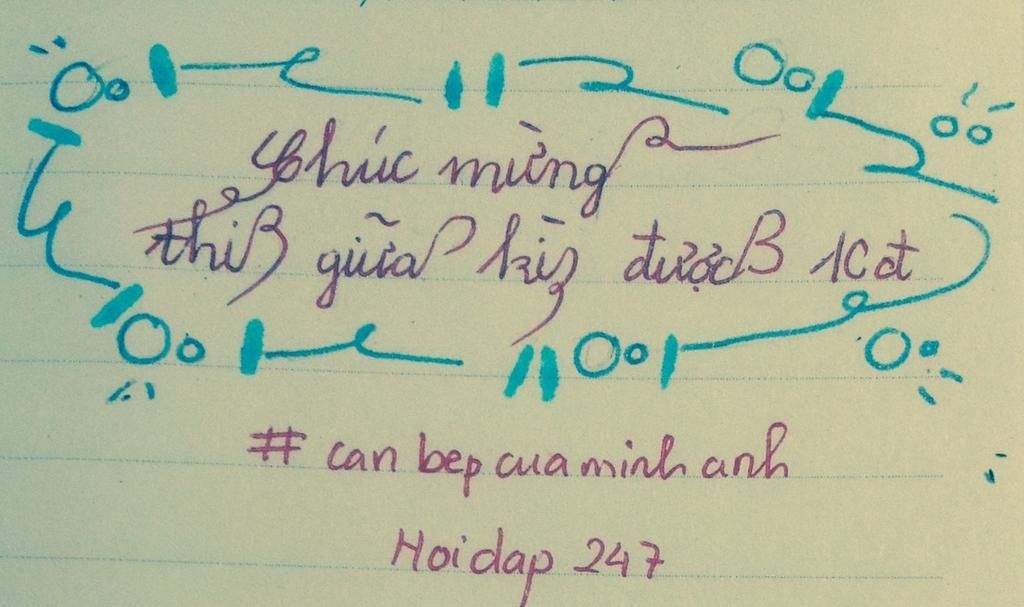 Chúc mừng
thi giữa kì được 10đ
# can bep cua minh anh
Hoidap 247